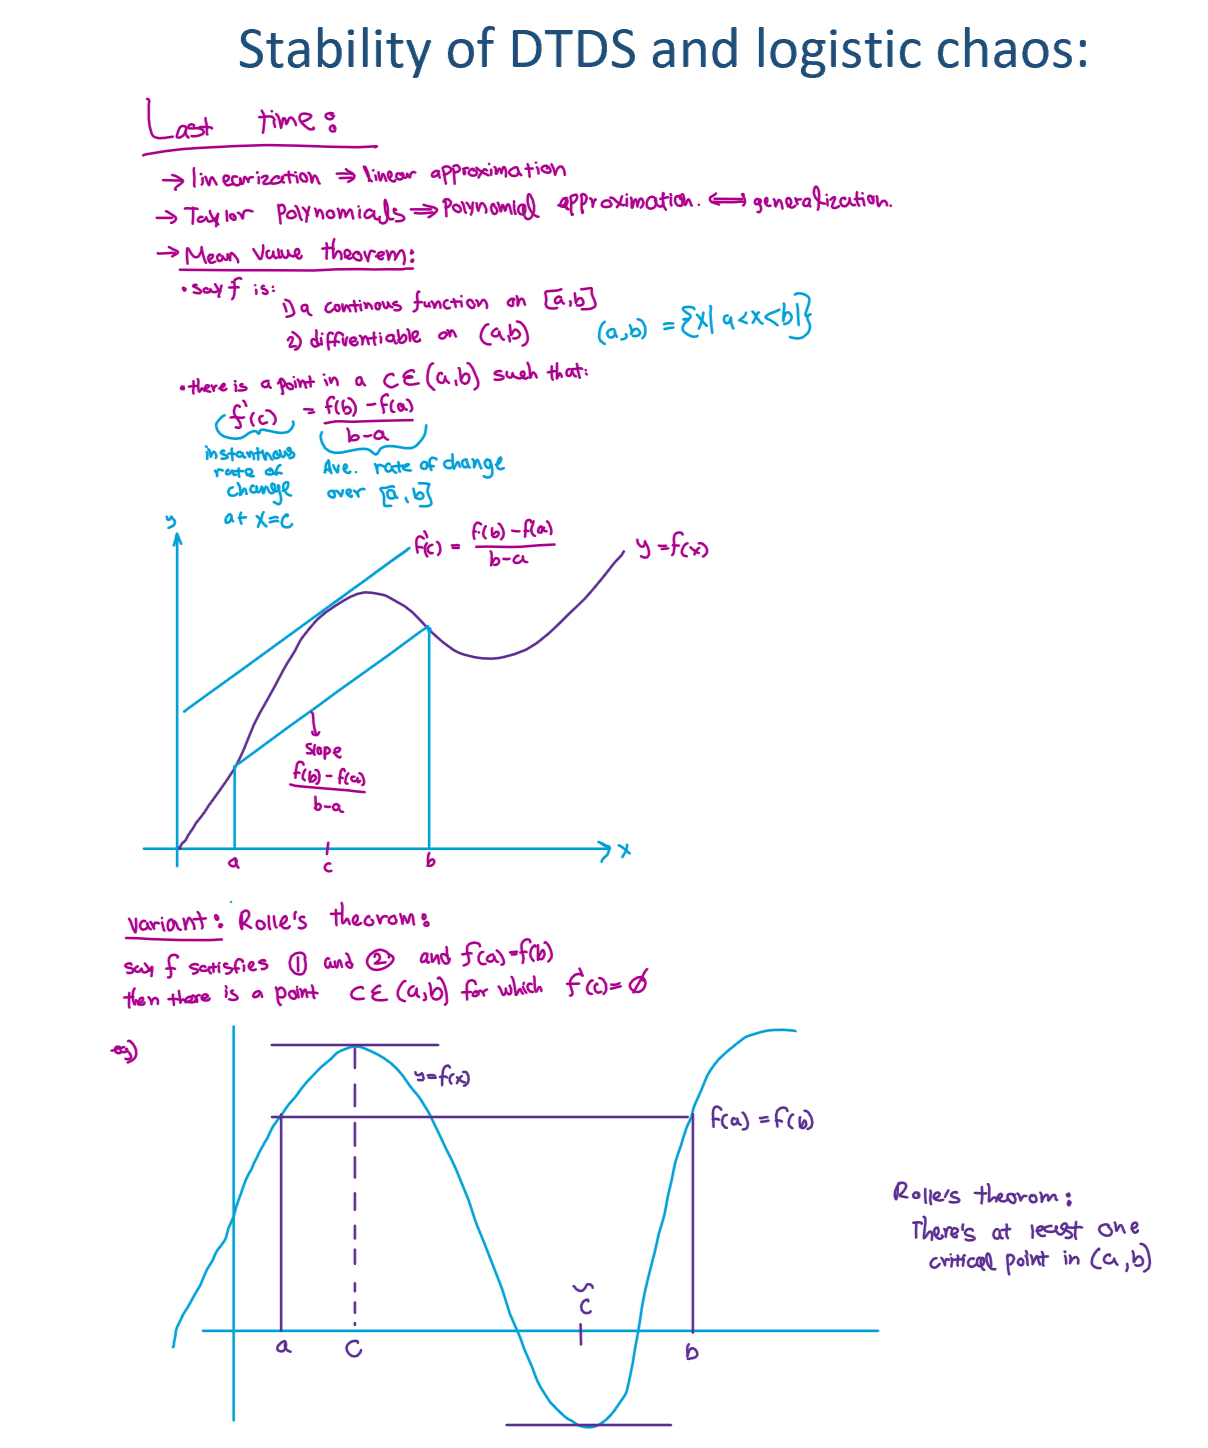 Stability of DTDS and logistic chaos:
Last time:
→ linearization ⇒ linear approximation
→ Taylor Polynomials ⇒ Polynomial approximation. ⟺ generalization.
→ Mean Value theorem:
• say f is:
1) a continous function on [a,b]
2) diffrentiable on (a,b)
(a,b) = {x| a<x<b|}
• there is a point in a c∈(a,b) such that:
f'(c) = f(b) - f(a) / b-a
instantnous
rate of
change
at x=c
Ave. rate of change
over [a,b]
y
f'(c) = f(b) - f(a) / b-a
y=f(x)
slope
f(b) - f(a) / b-a
a
c
b
x
Variant: Rolle's theorom:
say f satisfies ① and ② and f(a)=f(b)
then there is a point c∈(a,b) for which f'(c)=∅
eg)
y=f(x)
f(a) = f(b)
Rolle's theorom:
There's at least one
critical point in (a,b)
c̃
a
c
b